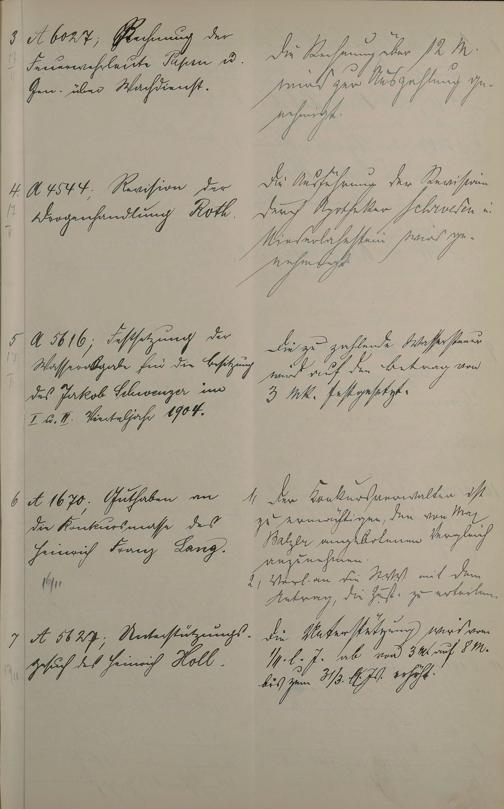 3 A 6027; Rechnung der
Feuerwehrleute u.
Gen. über Wachdienst.
Die Rechnung über 12 M.
wird zur Auszahlung ge-
nehmigt.
4. A 4544; Revision der
Drogenhandlung Roth.
Die Ausführung der Revision
durch Apotheker in
Niederlahnstein wird ge-
nehmigt.
5 A 5616; Festsetzung der
Wasserabgabe für die Besitzung
des Jakob Schwenzer im
I u. II. Vierteljahr 1904.
Die zu zahlende Wassersteuer
wird auf den Betrag von
3 Mk. festgesetzt.
6 A 1670; Guthaben an
die Konkursmasse des
Heinrich Franz Lang.
1, Der Konkursverwalter ist
zu ermächtigen, den von Max
Balzer angebotenen Vergleich
anzunehmen.
2, Vorl. an die mit dem
Antrag, die Zust. zu erteilen.
7 A 5627; Unterstützungs-
gesuch des Heinrich Holl.
Die Unterstützung wird vom
l. J. ab von 3 M. auf 8 M.
bis zum 31/3. erhöht.